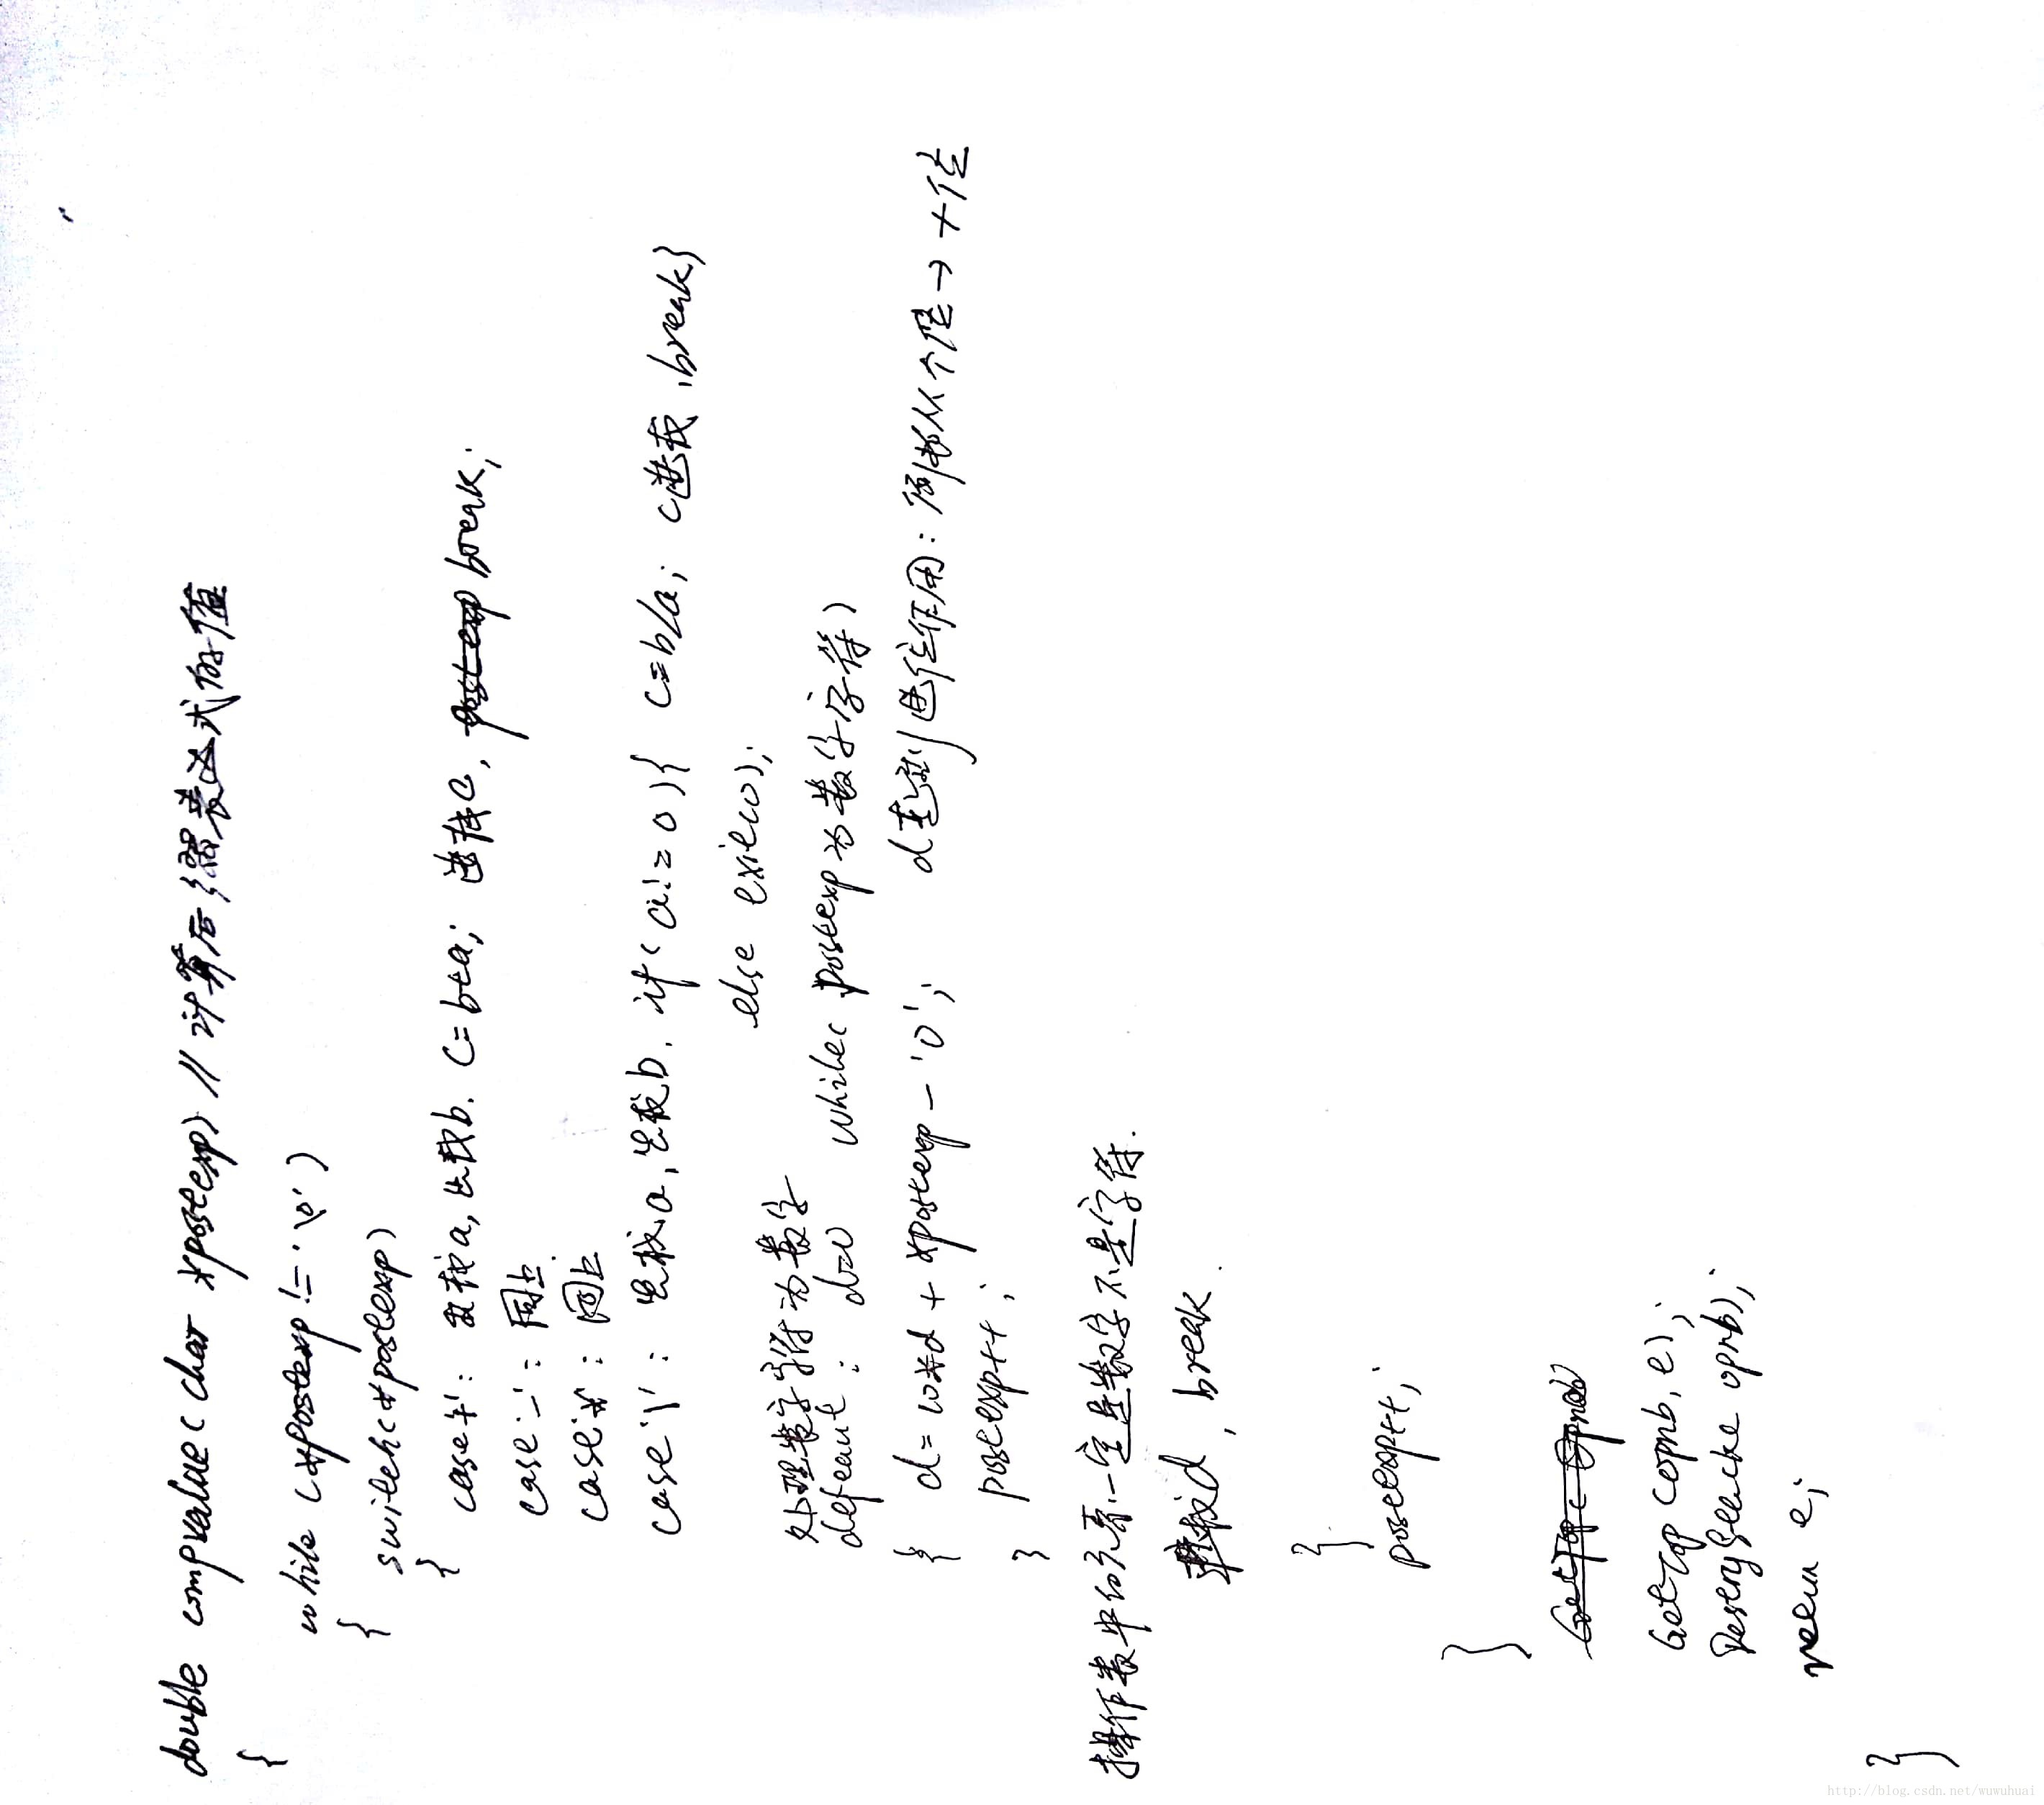 double compvalue(char *postexp) // 计算后缀表达式的值
{
while (*postexp != '\0')
{
switch(*postexp)
{
case '+': 出栈a, 出栈b. c=b+a; 进栈c, break;
case '-': 同上.
case '*': 同上
case '\': 出栈a, 出栈b. if(a!=0){ c=b/a; c进栈, break}
else exit(0);
处理数字字符为数字
default: d=0 while(postexp为数字字符)
{ d=10*d + *postexp - '0'; d起到进位作用: 从个位→十位
postexp++;
}
操作数中的元素一定是数字不是字符.
进栈d, break.
}
postexp++;
}
GetTop(opnb, e);
DestroyStack(opnb);
return e;
}
http://blog.csdn.net/wuwuhuai